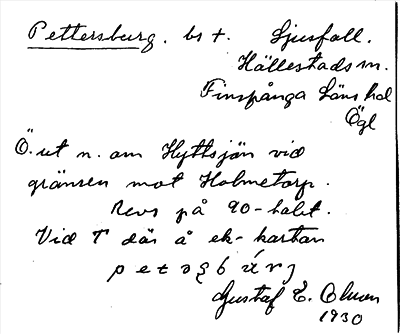 Pettersburg. bs t. Ljusfall.
Hällestads sn.
Finspånga Läns hd
Ögl
Ö. ut n. om Hyttsjön vid
gränsen mot Holmetorp.
Revs på 90-talet.
Vid T där å ek-kartan
Gustaf E.
1930